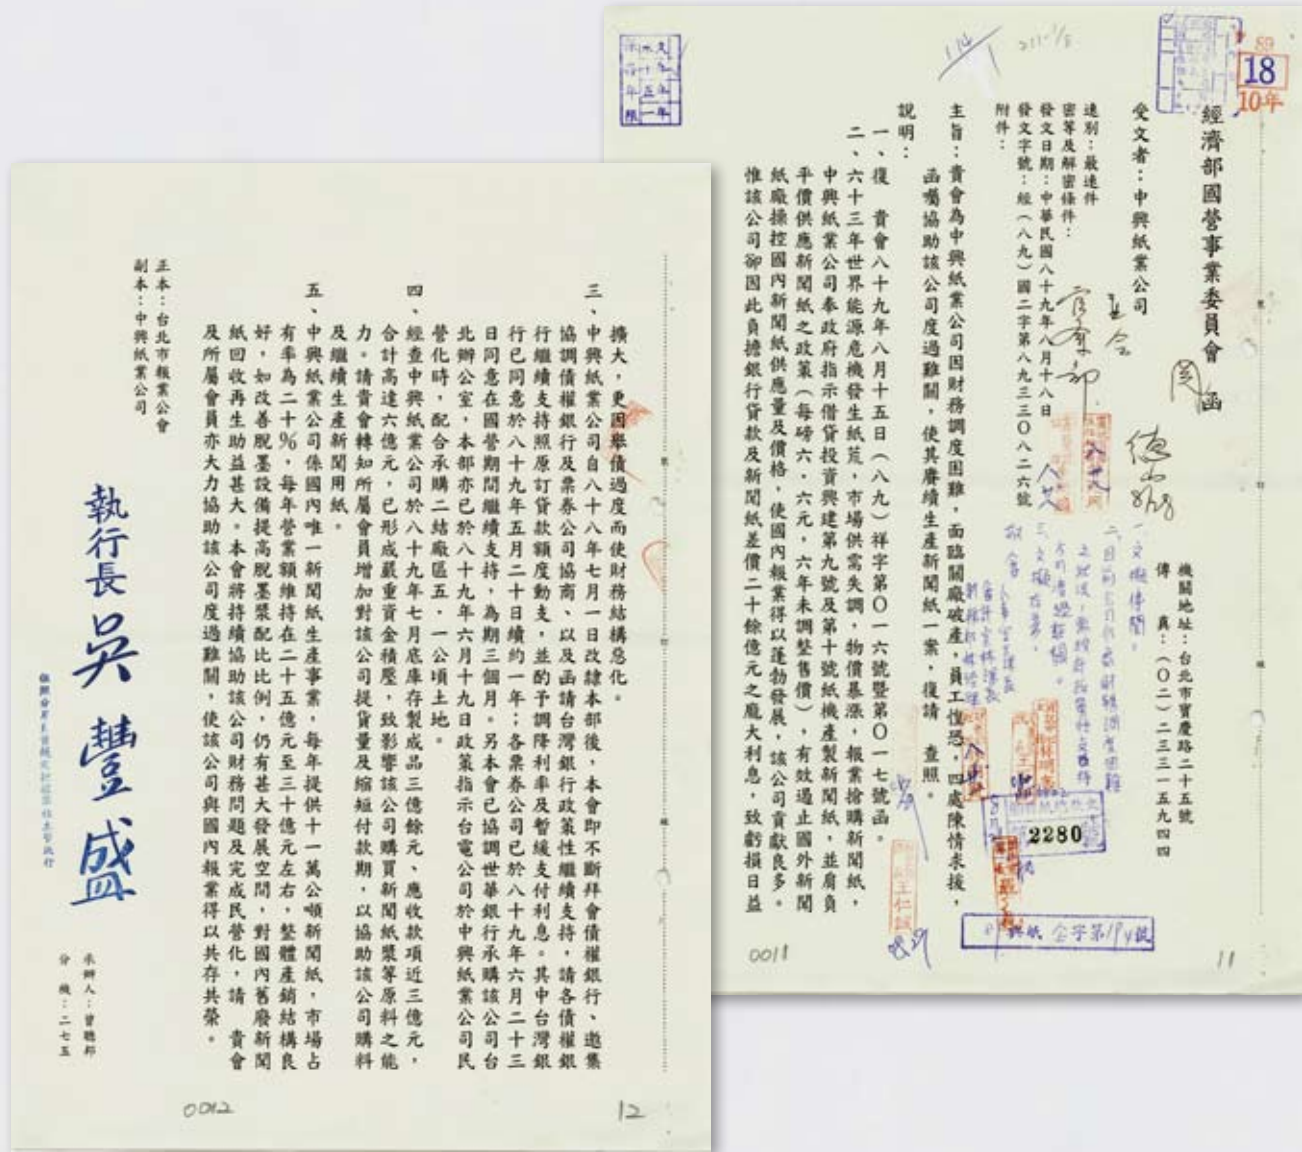 經濟部國營事業委員會　函
機關地址：台北市寶慶路二十五號
傳　真：（〇二）二三三一五九四四
受文者：中興紙業公司
速別：最速件
密等及解密條件：
發文日期：中華民國八十九年八月十八日
發文字號：經（八九）國二字第八九三三〇八二六號
附件：
主旨：貴會為中興紙業公司因財務調度困難，面臨關廠破產，員工惶恐，四處陳情求援，
函囑協助該公司度過難關，使其賡續生產新聞紙一案，復請　查照。
說明：
一、復　貴會八十九年八月十五日（八九）祥字第〇一六號暨第〇一七號函。
二、六十三年世界能源危機發生紙荒，市場供需失調，物價暴漲，報業搶購新聞紙，
中興紙業公司奉政府指示借貸投資興建第九號及第十號紙機產製新聞紙，並肩負
平價供應新聞紙之政策（每磅六．六元，六年未調整售價），有效遏止國外新聞
紙廠操控國內新聞紙供應量及價格，使國內報業得以蓬勃發展，該公司貢獻良多。
惟該公司卻因此負擔銀行貸款及新聞紙差價二十餘億元之龐大利息，致虧損日益
89
18
10年
2280
王仁誠
0011
11
擴大，更因舉債過度而使財務結構惡化。
三、中興紙業公司自八十八年七月一日改隸本部後，本會即不斷拜會債權銀行、邀集
協調債權銀行及票券公司協商、以及函請台灣銀行政策性繼續支持，請各債權銀
行繼續支持照原訂貸款額度動支，並酌予調降利率及暫緩支付利息。其中台灣銀
行已同意於八十九年五月二十日續約一年；各票券公司已於八十九年六月二十三
日同意在國營期間繼續支持，為期三個月。另本會已協調世華銀行承購該公司台
北辦公室，本部亦已於八十九年六月十九日政策指示台電公司於中興紙業公司民
營化時，配合承購二結廠區五．一公頃土地。
四、經查中興紙業公司於八十九年七月底庫存製成品三億餘元、應收款項近三億元，
合計高達六億元，已形成嚴重資金積壓，致影響該公司購買新聞紙漿等原料之能
力。請貴會轉知所屬會員增加對該公司提貨量及縮短付款期，以協助該公司購料
及繼續生產新聞用紙。
五、中興紙業公司係國內唯一新聞紙生產事業，每年提供十一萬公噸新聞紙，市場占
有率為二十％，每年營業額維持在二十五億元至三十億元左右，整體產銷結構良
好，如改善脫墨設備提高脫墨漿配比比例，仍有甚大發展空間，對國內舊廢新聞
紙回收再生助益甚大。本會將持續協助該公司財務問題及完成民營化，請　貴會
及所屬會員亦大力協助該公司度過難關，使該公司與國內報業得以共存共榮。
正本：台北市報業公會
副本：中興紙業公司
執行長 吳豐盛
承辦人：曾聰邦
分　機：二七五
0012
12